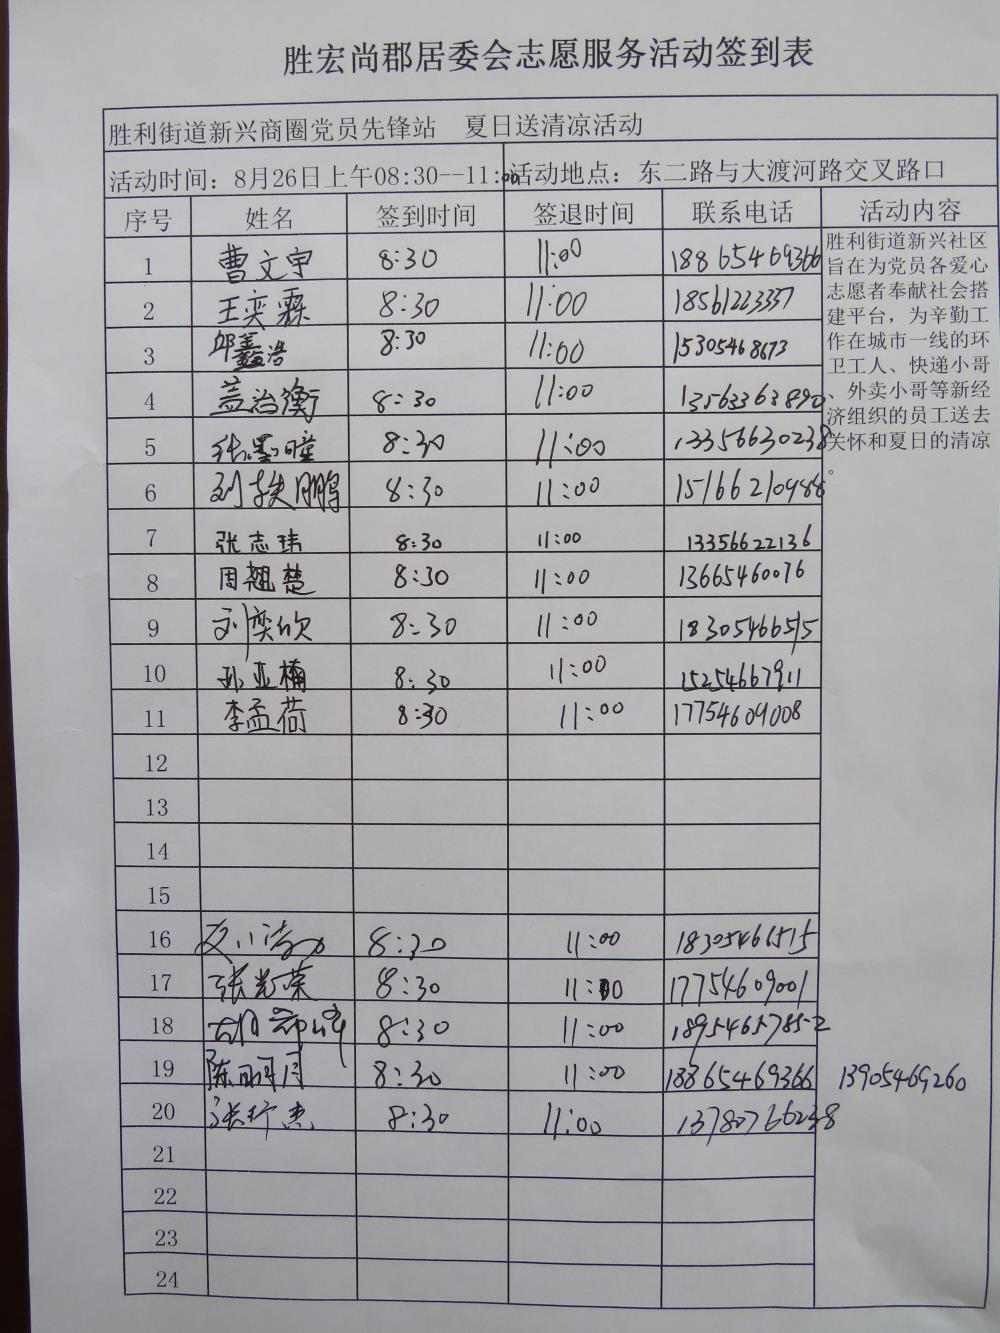 胜宏尚郡居委会志愿服务活动签到表
胜利街道新兴商圈党员先锋站 夏日送清凉活动
活动时间：8月26日上午08:30--11:00 活动地点：东二路与大渡河路交叉路口
序号 姓名 签到时间 签退时间 联系电话 活动内容
胜利街道新兴社区
旨在为党员各爱心
志愿者奉献社会搭
建平台，为辛勤工
作在城市一线的环
卫工人、快递小哥
、外卖小哥等新经
济组织的员工送去
关怀和夏日的清凉
。
1 曹文宇 8:30 11:00 18865469366
2 王奕霖 8:30 11:00 18561223337
3 邱鑫浩 8:30 11:00 15305468673
4 盖治衡 8:30 11:00 13563363890
5 张墨瞳 8:30 11:00 13356630238
6 刘轶鹏 8:30 11:00 15166210488
7 张志玮 8:30 11:00 13356622136
8 周翘楚 8:30 11:00 13665460076
9 刘奕欣 8:30 11:00 18305466515
10 孙亚楠 8:30 11:00 15254667911
11 李孟荷 8:30 11:00 17754609008
12
13
14
15
16 8:30 11:00 18305466515
17 张光荣 8:30 11:00 17754609001
18 8:30 11:00
19 陈明月 8:30 11:00 18865469366 13905469260
20 8:30 11:00 13780766238
21
22
23
24